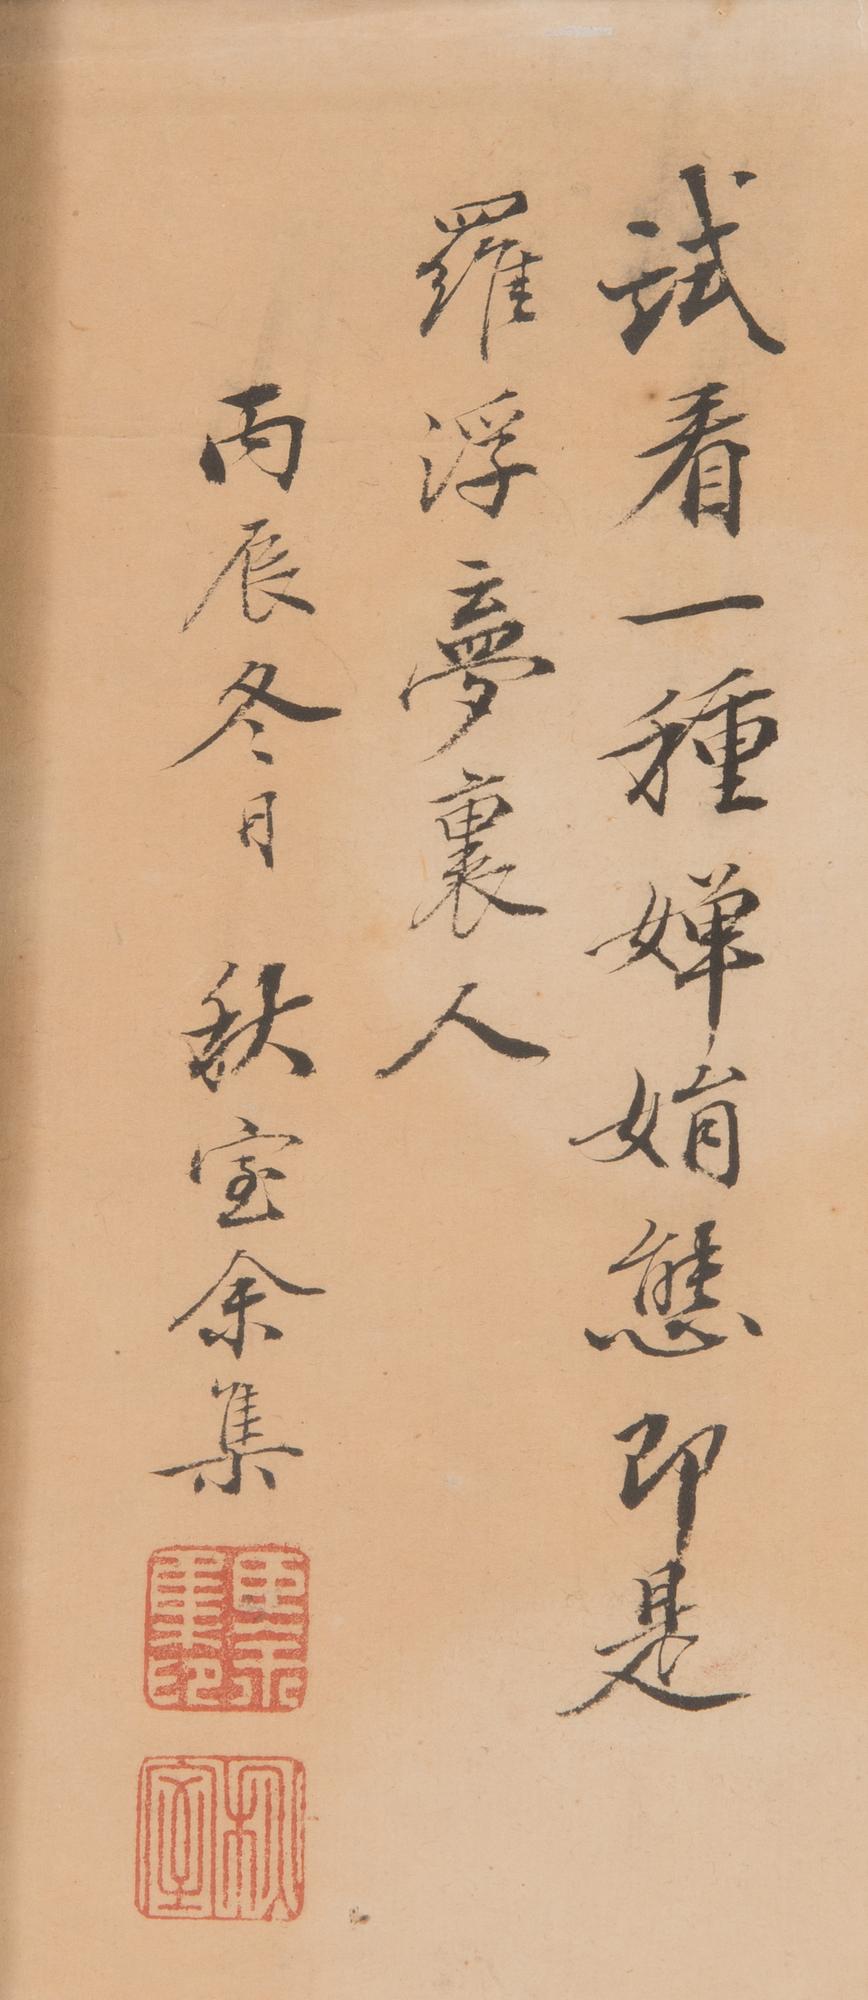 試看一種嬋娟態即是
羅浮夢裏人
丙辰冬日 秋室余集
秋室